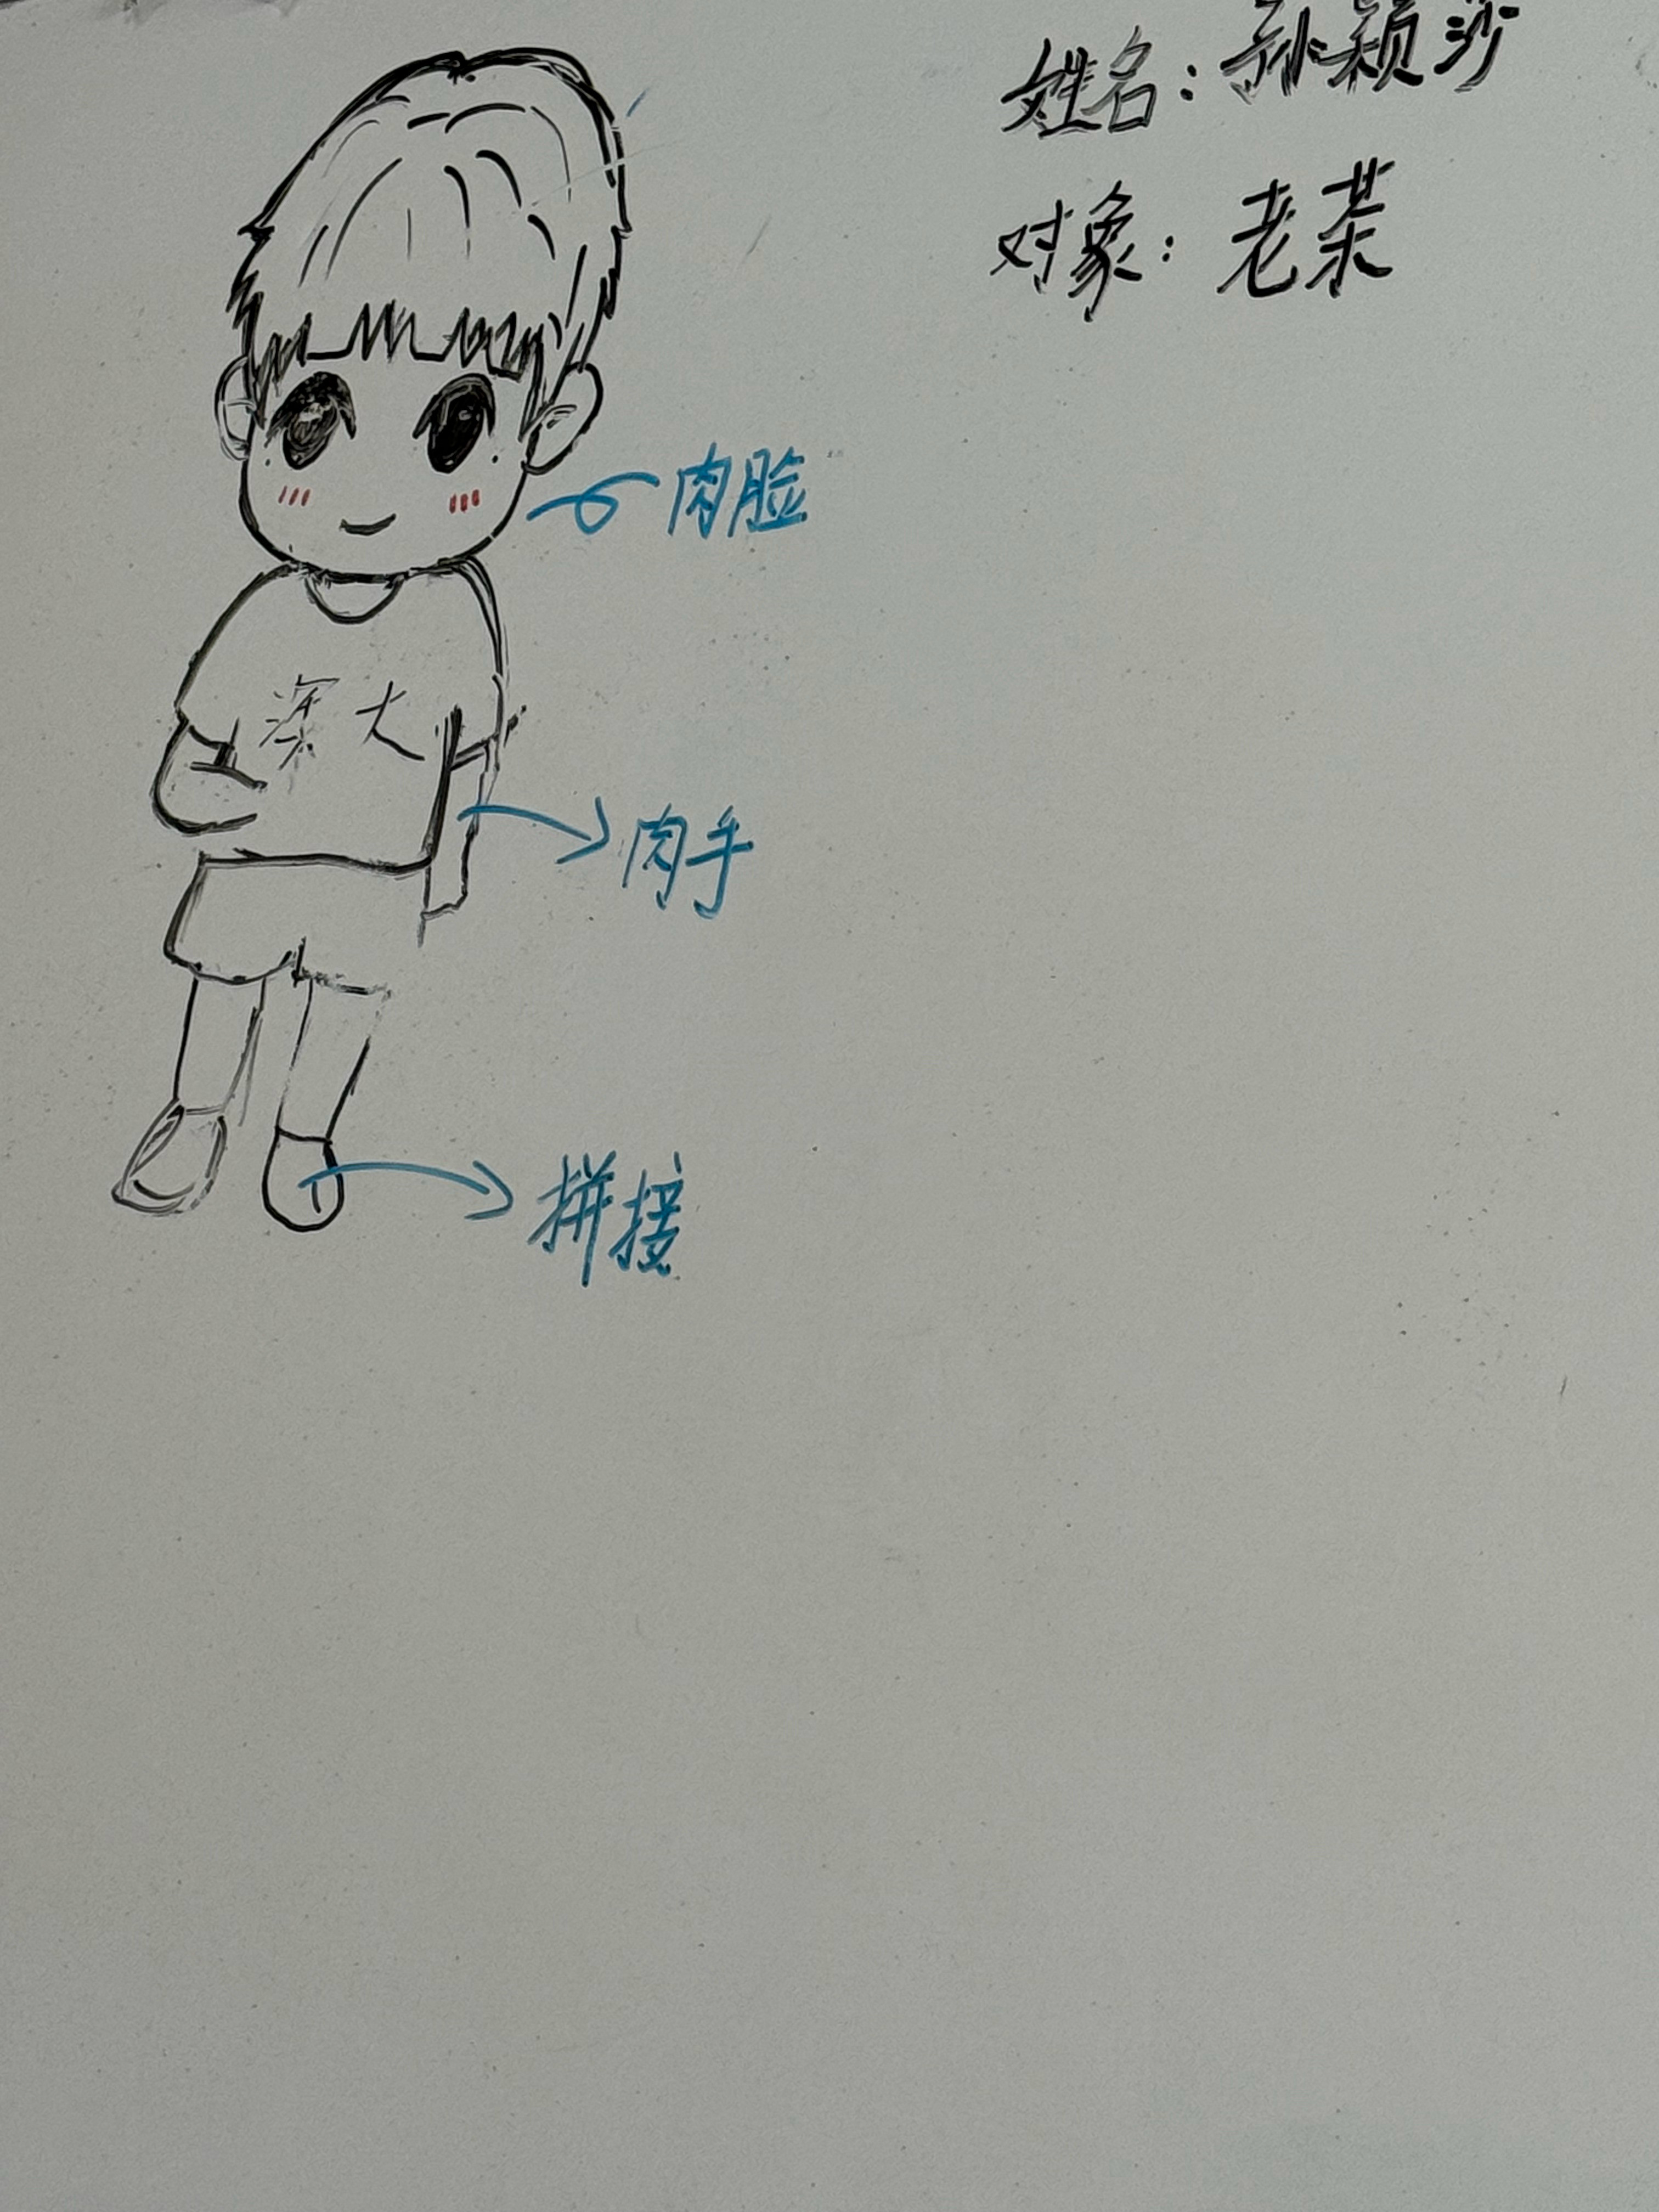 姓名：孙颖沙
对象：老茶
肉脸
深大
肉手
拼接